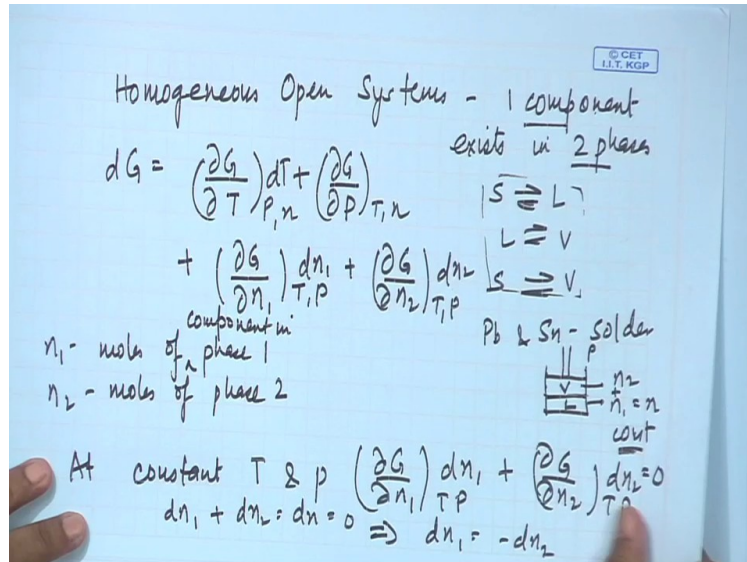 © CET
I.I.T. KGP
Homogeneous Open Systems - 1 component
exists in 2 phases
dG = (∂G/∂T)P,n dT + (∂G/∂P)T,n
+ (∂G/∂n₁)T,P dn₁ + (∂G/∂n₂)T,P dn₂
S ⇌ L
L ⇌ V
S ⇌ V
Pb & Sn - solder
P
V n2
L n₁ = n
cont
component in
n₁ - moles of ^ phase 1
n₂ - moles of phase 2
At constant T & P (∂G/∂n₁)TP dn₁ + (∂G/∂n₂)TP dn₂ = 0
dn₁ + dn₂ = dn = 0 ⇒ dn₁ = -dn₂